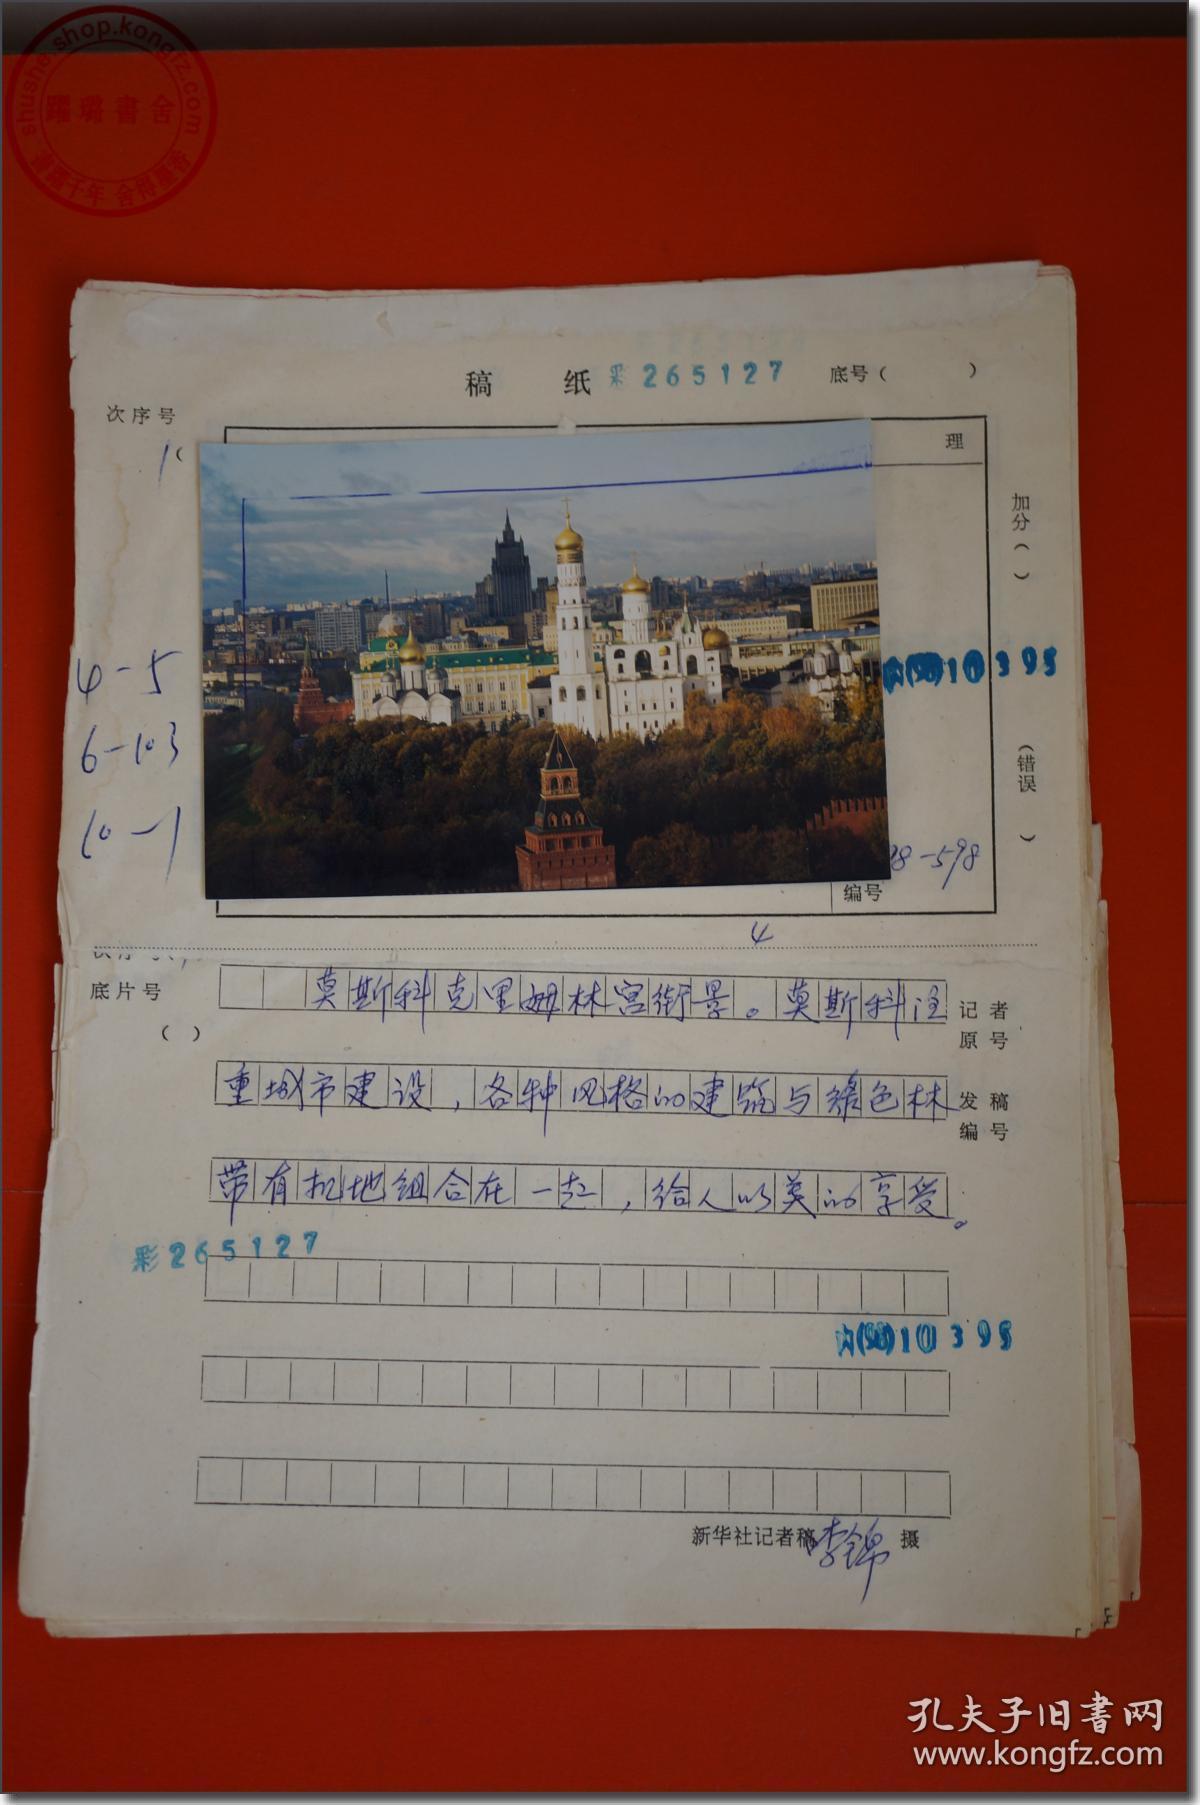 shushe.shop.kongfz.com
躍璐書舍
稿 纸 彩 265127 底号( )
次序号
1(
理
加分( )
4-5
内(98)10395
6-103
(错误 )
10-1
98-598
编号
4
底片号
( )
莫斯科克里姆林宫街景。莫斯科注
记者
原号
重城市建设,各种风格的建筑与绿色林
发稿
编号
带有机地组合在一起,给人以美的享受。
彩265127
内(98)10395
新华社记者稿 李锦 摄
孔夫子旧书网
www.kongfz.com